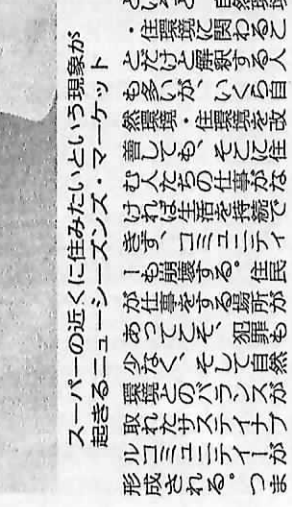 スーパーの近くに住みたいという現象が
起きるニューシーズンズ・マーケット
自然環境
・住環境に関わるこ
とだけと解釈する人
も多いが、いくら自
然環境・住環境を改
善しても、そこに住
む人たちの仕事がな
ければ生活を持続で
きず、コミュニティ
ーも崩壊する。住民
が仕事をする場所が
あってこそ、犯罪も
少なく、そして自然
環境とのバランスが
取れたサステイナブ
ルコミュニティーが
形成される。つま